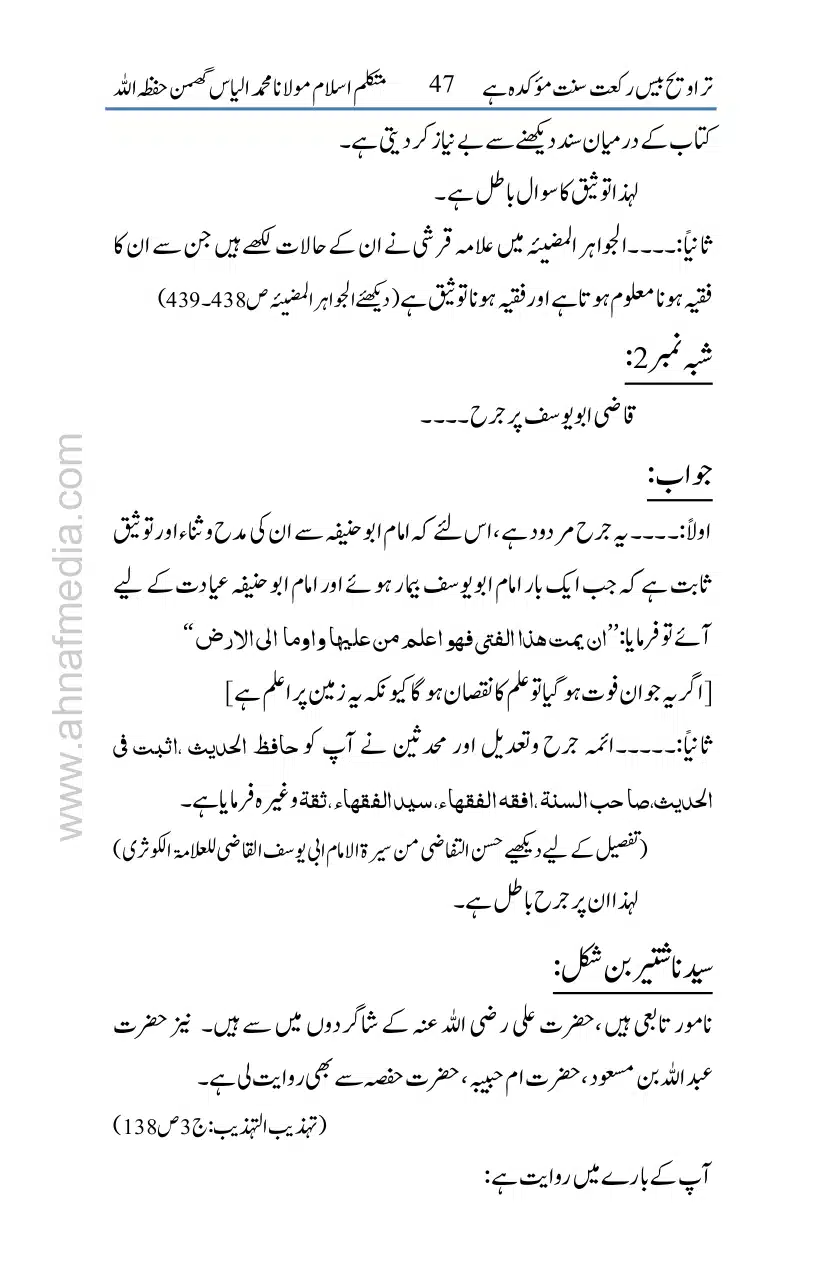 تراویح بیس رکعت سنت مؤکدہ ہے 47 متکلم اسلام مولانا محمد الیاس گھمن حفظہ اللہ
کتاب کے درمیان سند دیکھنے سے بے نیاز کر دیتی ہے۔
لہذا توثیق کا سوال باطل ہے۔
ثانیاً:۔۔۔۔الجواہر المضیئہ میں علامہ قرشی نے ان کے حالات لکھے ہیں جن سے ان کا
فقیہ ہونا معلوم ہوتا ہے اور فقیہ ہونا توثیق ہے (دیکھئے الجواہر المضیئہ ص438۔439)
شبہ نمبر 2:
قاضی ابو یوسف پر جرح۔۔۔۔
جواب:
اولاً:۔۔۔۔ یہ جرح مردود ہے، اس لئے کہ امام ابو حنیفہ سے ان کی مدح وثناء اور توثیق
ثابت ہے کہ جب ایک بار امام ابو یوسف بیمار ہوئے اور امام ابو حنیفہ عیادت کے لیے
آئے تو فرمایا: ’’ان یمت هذا الفتی فهو اعلم من علیها واوما الی الارض‘‘
[اگر یہ جوان فوت ہو گیا تو علم کا نقصان ہو گا کیونکہ یہ زمین پر اعلم ہے]
ثانیاً:۔۔۔۔۔ائمہ جرح وتعدیل اور محدثین نے آپ کو حافظ الحدیث، اثبت فی
الحدیث، صاحب السنة، افقه الفقهاء، سید الفقهاء، ثقة وغیرہ فرمایا ہے۔
(تفصیل کے لیے دیکھیے حسن التقاضی من سیرۃ الامام ابی یوسف القاضی للعلامۃ الکوثری)
لہذا ان پر جرح باطل ہے۔
سیدنا شتیر بن شکل:
نامور تابعی ہیں، حضرت علی رضی اللہ عنہ کے شاگردوں میں سے ہیں۔ نیز حضرت
عبد اللہ بن مسعود، حضرت ام حبیبہ، حضرت حفصہ سے بھی روایت لی ہے۔
(تہذیب التہذیب: ج3 ص138)
آپ کے بارے میں روایت ہے:
www.ahnafmedia.com